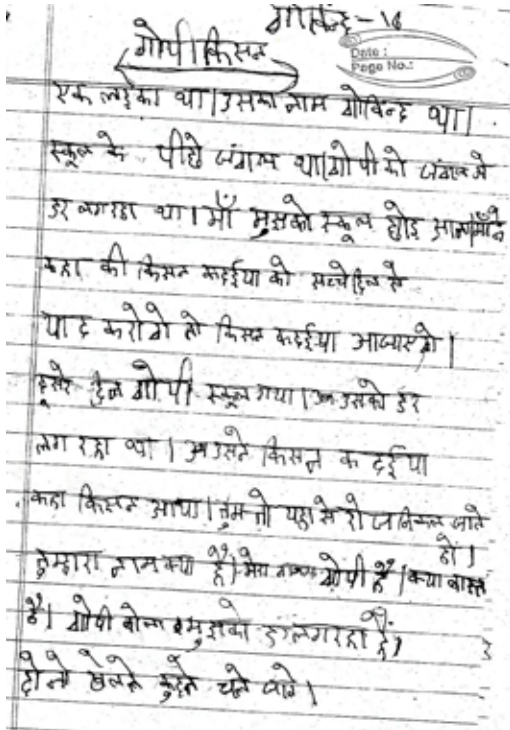 गोविन्द - 16
गोपी किसन
Date :
Page No.:
एक लड़का था। उसका नाम गोविन्द था।
स्कूल के पीछे जंगल था। गोपी को जंगल से
डर लग रहा था। माँ मुझको स्कूल छोड़ आना। माँ ने
कहा की किसन कन्हईया को सच्चे दिल से
याद करोगे तो किसन कन्हईया आजाएगे।
दूसरे दिन गोपी स्कूल गया। उसको डर
लग रहा था। उसने किसन कन्हईया
कहा किसन आया। तुम तो यहा से रोज निकल जाते
हो।
तुम्हारा नाम क्या है। मेरा नाम गोपी है। क्या काम
है। गोपी बोला मुझको डर लग रहा है।
दोनो खेलते कुदते चले गये।